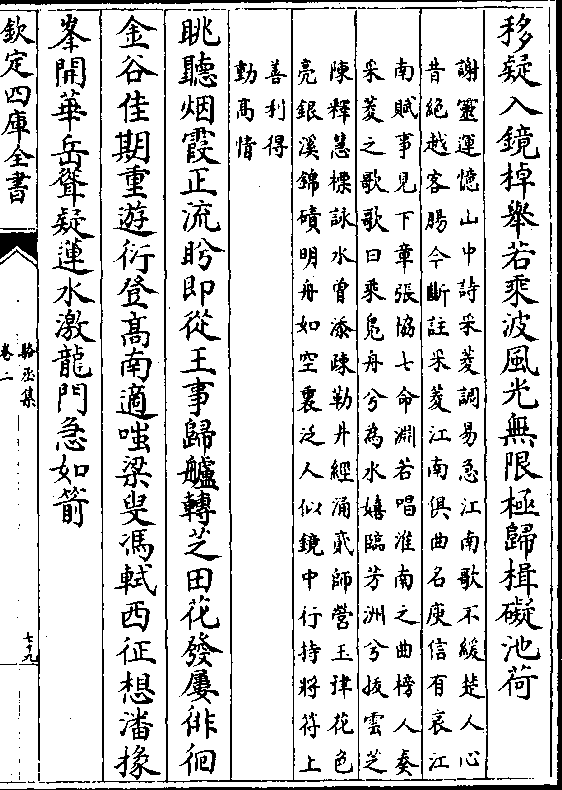 移疑入鏡棹舉若乘波風光無限極歸楫礙池荷
謝靈運憶山中詩采菱調易急江南歌不緩楚人心
昔絕越客腸今斷註采菱江南俱曲名庾信有哀江
南賦事見下章張協七命淵若唱淮南之曲榜人奏
采菱之歌歌曰乘鳧舟兮為水嬉臨芳洲兮拔雲芝
陳釋慧標詠水曾添疎勒井經涌貳師營玉津花色
亮銀溪錦磧明舟如空裏泛人似鏡中行持將符上
善利得
動高情
眺聽烟霞正流盻即從王事歸艫轉芝田花發屢徘徊
金谷佳期重遊衍登高南適嗤梁叟馮軾西征想潘掾
峯開華岳聳疑蓮水激龍門急如箭
欽定四庫全書
駱丞集
卷二
七九